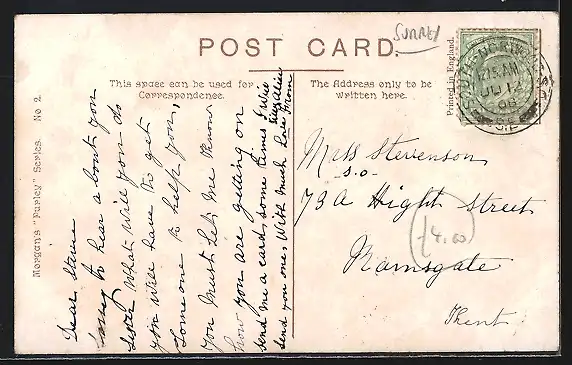 SURREY
POST CARD.
This space can be used for
Correspondence.
The Address only to be
written here.
Printed in England.
Morgan's "Purley" Series. No 2.
Dear Steve
Sorry to hear a bout you
Sister What will you do
you will have to get
Someone to help you,
you must let me know
how you are getting on
send me a card some times &
send you one, With much Love From
Miss Stevenson
S.O.
73A Hight Street
Ramsgate
Kent
14.00
12.15 AM
JU 12
06
S.E